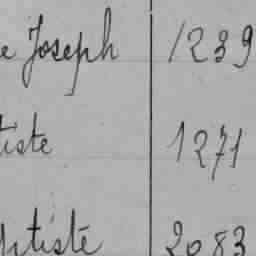 e Joseph 1239
tiste 1271
ptiste 2083